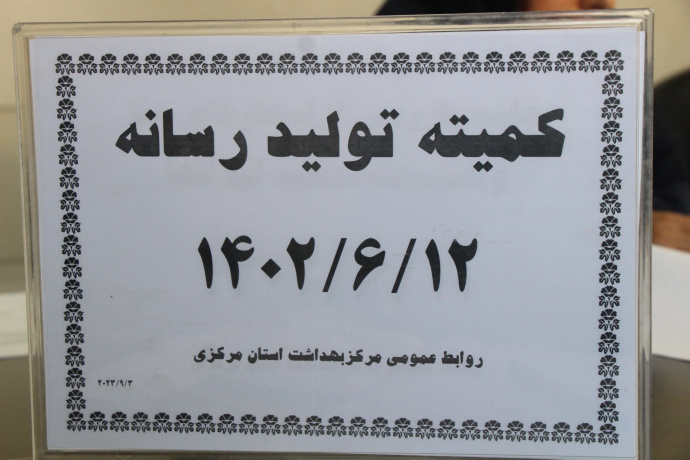 کمیته تولید رسانه
۱۴۰۲/۶/۱۲
روابط عمومی مرکزبهداشت استان مرکزی
۲۰۲۳/۹/۳